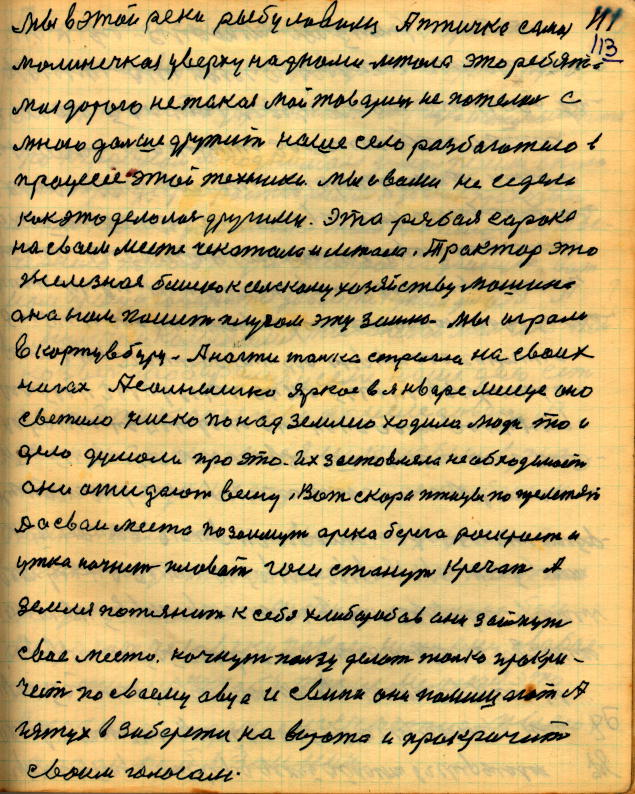 Мы в этой реки рыбу ловили А птичка сама
113
малинечкая уверху надномя летала это ребята
мая дорого не такая мой товарищ не потел с
мною дальше дружить наше село разбагатело в
процессе этой техники. Мы с вами не седели
как это делолоя другими. Эта рябая сарока
на своем месте чекотала и летала. Трактор это
железная близко к селскому хазяйству машина
она нам пашит плугом эту землю. Мы ограли
в картув буру. А настя стояла на своих
нагах А солнышко яркое в январе месеце оно
светило ниско по над землею ходила люди то и
дело думали про это. Их зостовляла необходимость
они ожидают весну, Вот скора птицы по прелетят
до свои места позаимут а река берега роскроит и
утка начнет пловать госи станут кречать А
земля потянит к себя хлиборобав они зоймут
свае место. начнут ползу делат толко прокри-
чат по своему овца и свиня они помищают А
пятух взберети на ворота и прокричит
своим голосам.